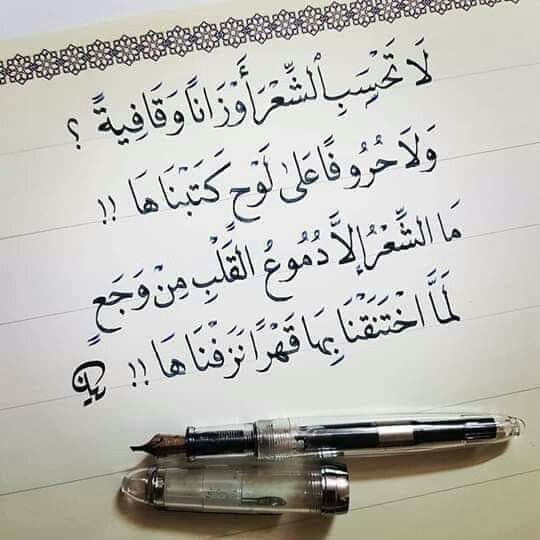 لَا تَحْسَبِ ٱلشِّعْرَ أَوْزَانًا وَقَافِيةً ؟
وَلَا حُرُوفًا عَلىٰ لَوْحٍ كَتَبْنَاهَا !!
مَا الشِّعْرُ إلَّا دُمُوعُ القَلْبِ مِنْ وَجَعٍ
لَمَّا اخْتَنَقْنَا بِهَا قَهْرًا نَزَفْنَاهَا !!